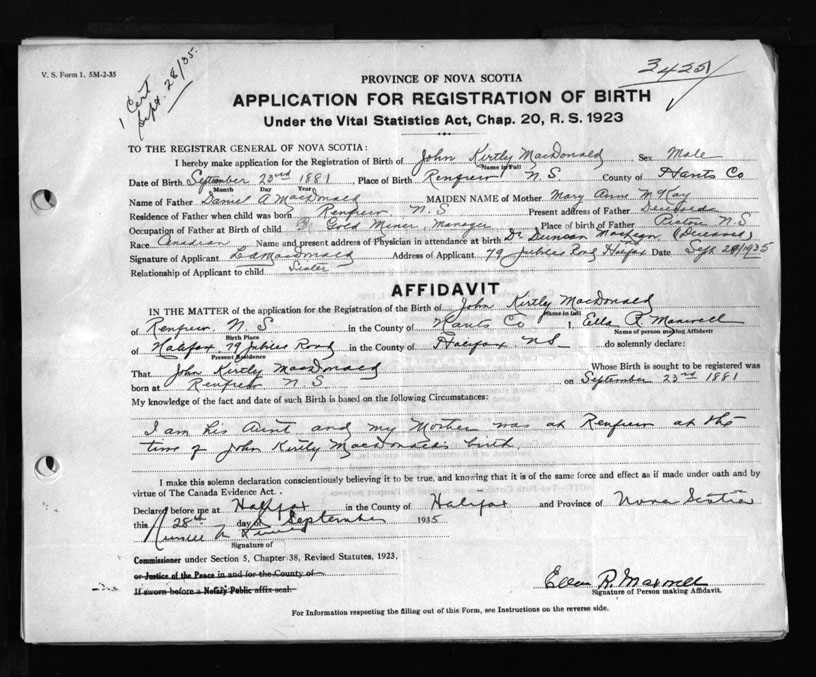 V. S. Form 1. 5M-2-35
1 Cert
Sept. 28/35.
3425
PROVINCE OF NOVA SCOTIA
APPLICATION FOR REGISTRATION OF BIRTH
Under the Vital Statistics Act, Chap. 20, R. S. 1923
TO THE REGISTRAR GENERAL OF NOVA SCOTIA:
I hereby make application for the Registration of Birth of John Kirtly MacDonald Sex Male
Name in Full
Date of Birth September 23rd 1881 Place of Birth Renfrew N. S. County of Hants Co
Month Day Year
Name of Father Daniel A MacDonald MAIDEN NAME of Mother Mary Anne McKay
Residence of Father when child was born Renfrew. N. S Present address of Father Deceased
Occupation of Father at Birth of child Gold Miner, Manager Place of birth of Father Pictou N. S
Race Canadian Name and present address of Physician in attendance at birth Dr Duncan (Deceased)
Signature of Applicant MacDonald Address of Applicant 79 Jubilee Road Halifax Date Sept 28/1935
Relationship of Applicant to child Sister
AFFIDAVIT
IN THE MATTER of the application for the Registration of the Birth of John Kirtly MacDonald
Name in full
of Renfrew. N S in the County of Hants Co I, Ella R Maxwell
Birth Place Name of person making Affidavit
of Halifax 79 Jubilee Road in the County of Halifax. N.S do solemnly declare:
Present Residence
That John Kirtly MacDonald Whose Birth is sought to be registered was
born at Renfrew N S on September 23rd 1881
My knowledge of the fact and date of such Birth is based on the following Circumstances:
I am his Aunt and my Mother was at Renfrew at the
time of John Kirtly MacDonald's birth.
I make this solemn declaration conscientiously believing it to be true, and knowing that it is of the same force and effect as if made under oath and by
virtue of The Canada Evidence Act.
Declared before me at Halifax in the County of Halifax and Province of Nova Scotia
this 28th day of September 1935
Signature of
Commissioner under Section 5, Chapter 38, Revised Statutes, 1923,
or Justice of the Peace in and for the County of
If sworn before a Notary Public affix seal.
Ellen R. Maxwell
Signature of Person making Affidavit.
For Information respecting the filling out of this Form, see Instructions on the reverse side.